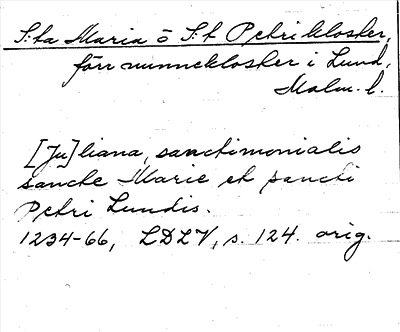 S:ta Maria o S:t Petri kloster,
förr nunnekloster i Lund,
Malm. l.
[Ju]liana, sanctimonialis
sancte Marie et sancti
Petri Lundis.
1234-66, LDLV, s. 124. orig.